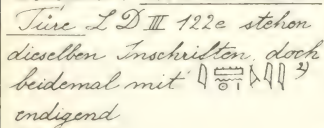 Türe L D III 122e stehen
dieselben Inschriften, doch
beidemal mit
endigend